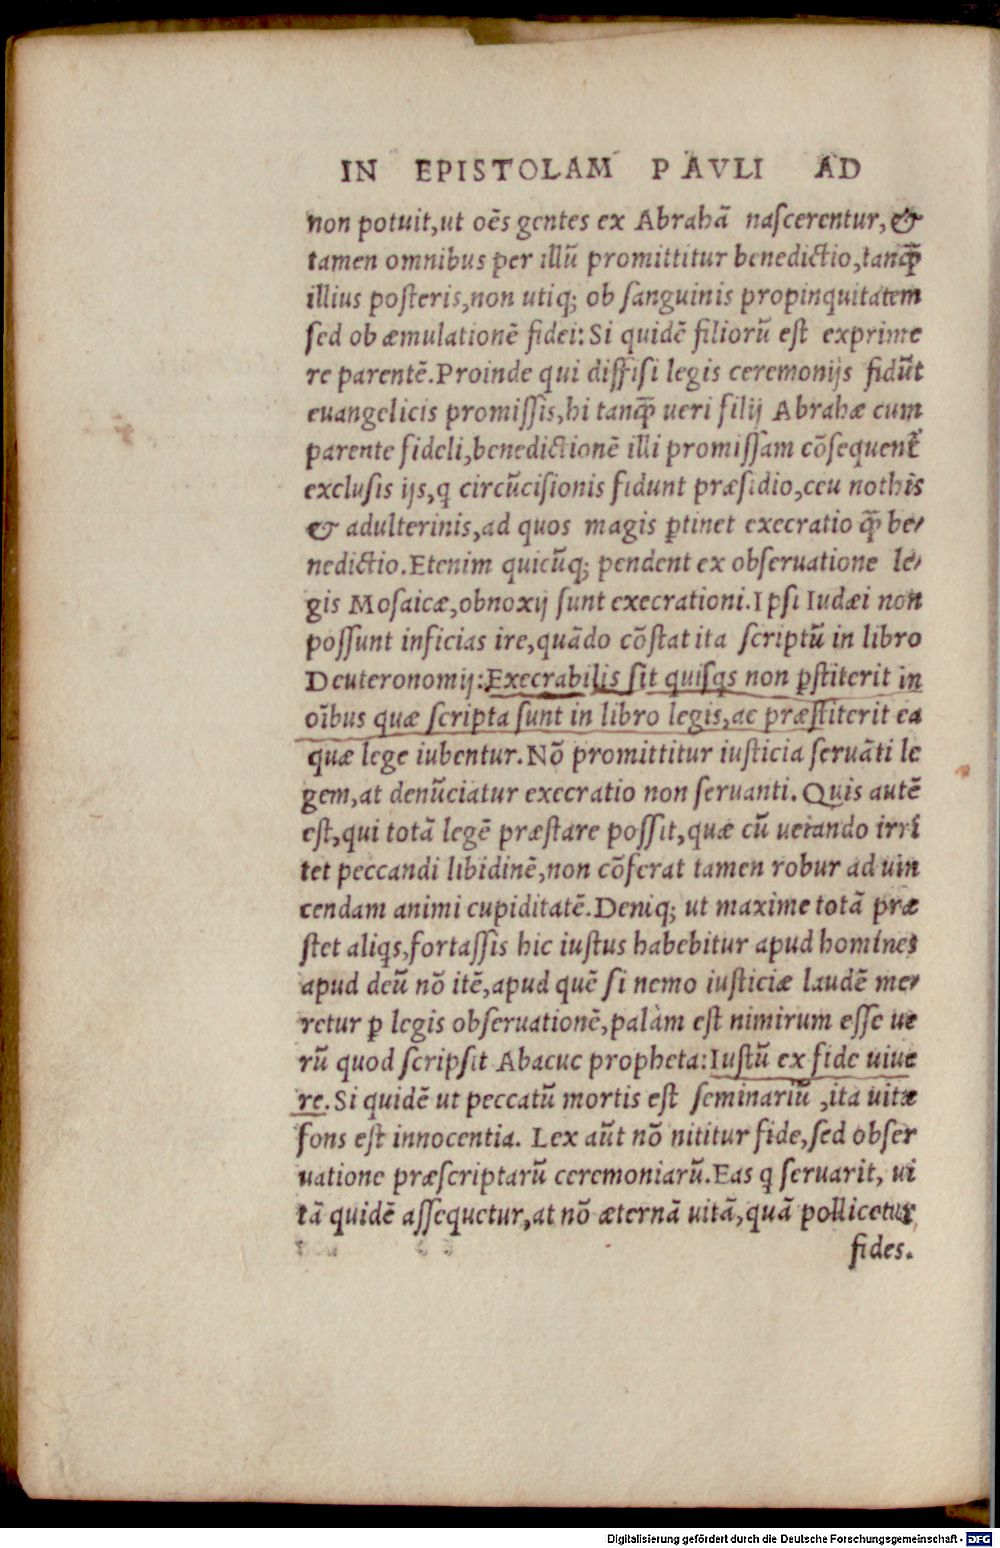 IN EPISTOLAM PAVLI AD
non potuit,ut oẽs gentes ex Abrahã naſcerentur,&
tamen omnibus per illũ promittitur benedictio,tanq̃
illius poſteris,non utiq; ob ſanguinis propinquitatem
ſed ob æmulationẽ fidei: Si quidẽ filiorũ eſt exprime
re parentẽ.Proinde qui diffiſi legis ceremonijs fidũt
euangelicis promiſſis,hi tanq̃ ueri filij Abrahæ cum
parente fideli,benedictionẽ illi promiſſam cõſequent᷑
excluſis ijs,ꝗ circũciſionis fidunt præſidio,ceu nothis
& adulterinis,ad quos magis ꝑtinet execratio q̃ be/
nedictio.Etenim quicũq; pendent ex obſeruatione le/
gis Moſaicæ,obnoxij ſunt execrationi.Ipſi Iudæi non
poſſunt inficias ire,quãdo cõſtat ita ſcriptũ in libro
Deuteronomij:Execrabilis ſit quiſꝗs non ꝑſtiterit in
oĩbus quæ ſcripta ſunt in libro legis,ac præſtiterit ea
quæ lege iubentur.Nõ promittitur iuſticia ſeruãti le
gem,at denũciatur execratio non ſeruanti. Quis autẽ
eſt,qui totã legẽ præſtare poſſit,quæ cũ uetando irri
tet peccandi libidinẽ,non cõferat tamen robur ad uin
cendam animi cupiditatẽ.Deniq; ut maxime totã præ
ſtet aliꝗs,fortaſſis hic iuſtus habebitur apud homines
apud deũ nõ itẽ,apud quẽ ſi nemo iuſticiæ laudẽ me/
retur ꝑ legis obſeruationẽ,palàm eſt nimirum eſſe ue
rũ quod ſcripſit Abacuc propheta:Iuſtũ ex fide uiue
re.Si quidẽ ut peccatũ mortis eſt ſeminariũ ,ita uitæ
fons eſt innocentia. Lex aũt nõ nititur fide,ſed obſer
uatione præſcriptarũ ceremoniarũ.Eas ꝗ ſeruarit, ui
tã quidẽ aſſequetur,at nõ æternã uitã,quã pollicetur
fides.
Digitalisierung gefördert durch die Deutsche Forschungsgemeinschaft - DFG